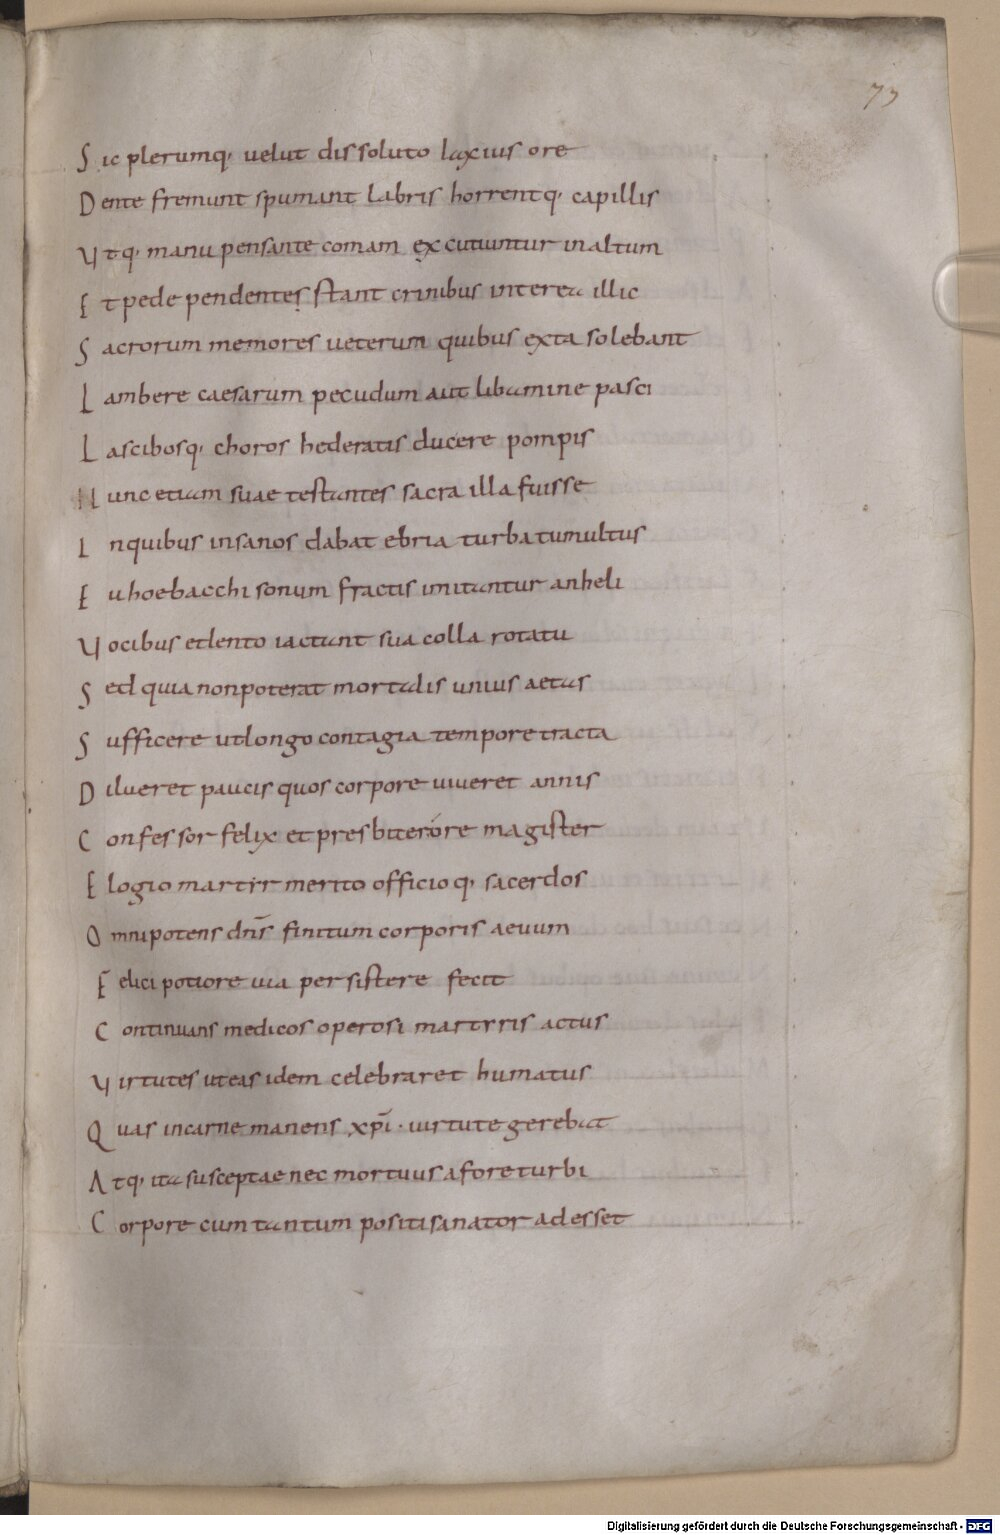 73
Sic plerumq; uelut dissoluto laxius ore
Dente fremunt spumant labris horrentq; capillis
Vtq; manu pensante comam excutiuntur inaltum
Et pede pendentes stant crinibus interea illic
Sacrorum memores ueterum quibus exta solebant
Lambere caesarum pecudum aut libamine pasci
Lascibosq; choros hederatis ducere pompis
Nunc etiam suae testantes sacra illa fuisse
Inquibus insanos dabat ebria turba tumultus
Euhoebacchi sonum fractis imitantur anheli
Vocibus etlento iactant sua colla rotatu
Sed quia nonpoterat mortalis unius aetas
Sufficere utlongo contagia tempore tracta
Dilueret paucis quos corpore uiueret annis
Confessor felix et presbiter óre magister
Elogio martyr merito officioq; sacerdos
Omnipotens dn̄s finitum corporis aeuum
Felici potiore uia persistere fecit
Continuans medicos operosi martyris actus
Virtutes uteas idem celebraret humatus
Quas incarne manens xp̄i · uirtute gerebat
Atq; ita susceptae nec mortuus afore turbi
Corpore cum tantum positi sanator adesset
Digitalisierung gefördert durch die Deutsche Forschungsgemeinschaft - DFG